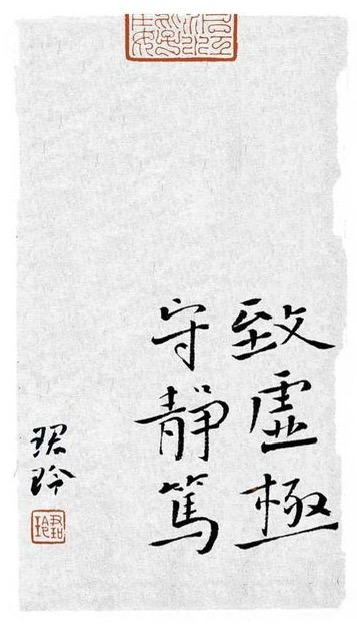 致虛極
守靜篤
珺玲